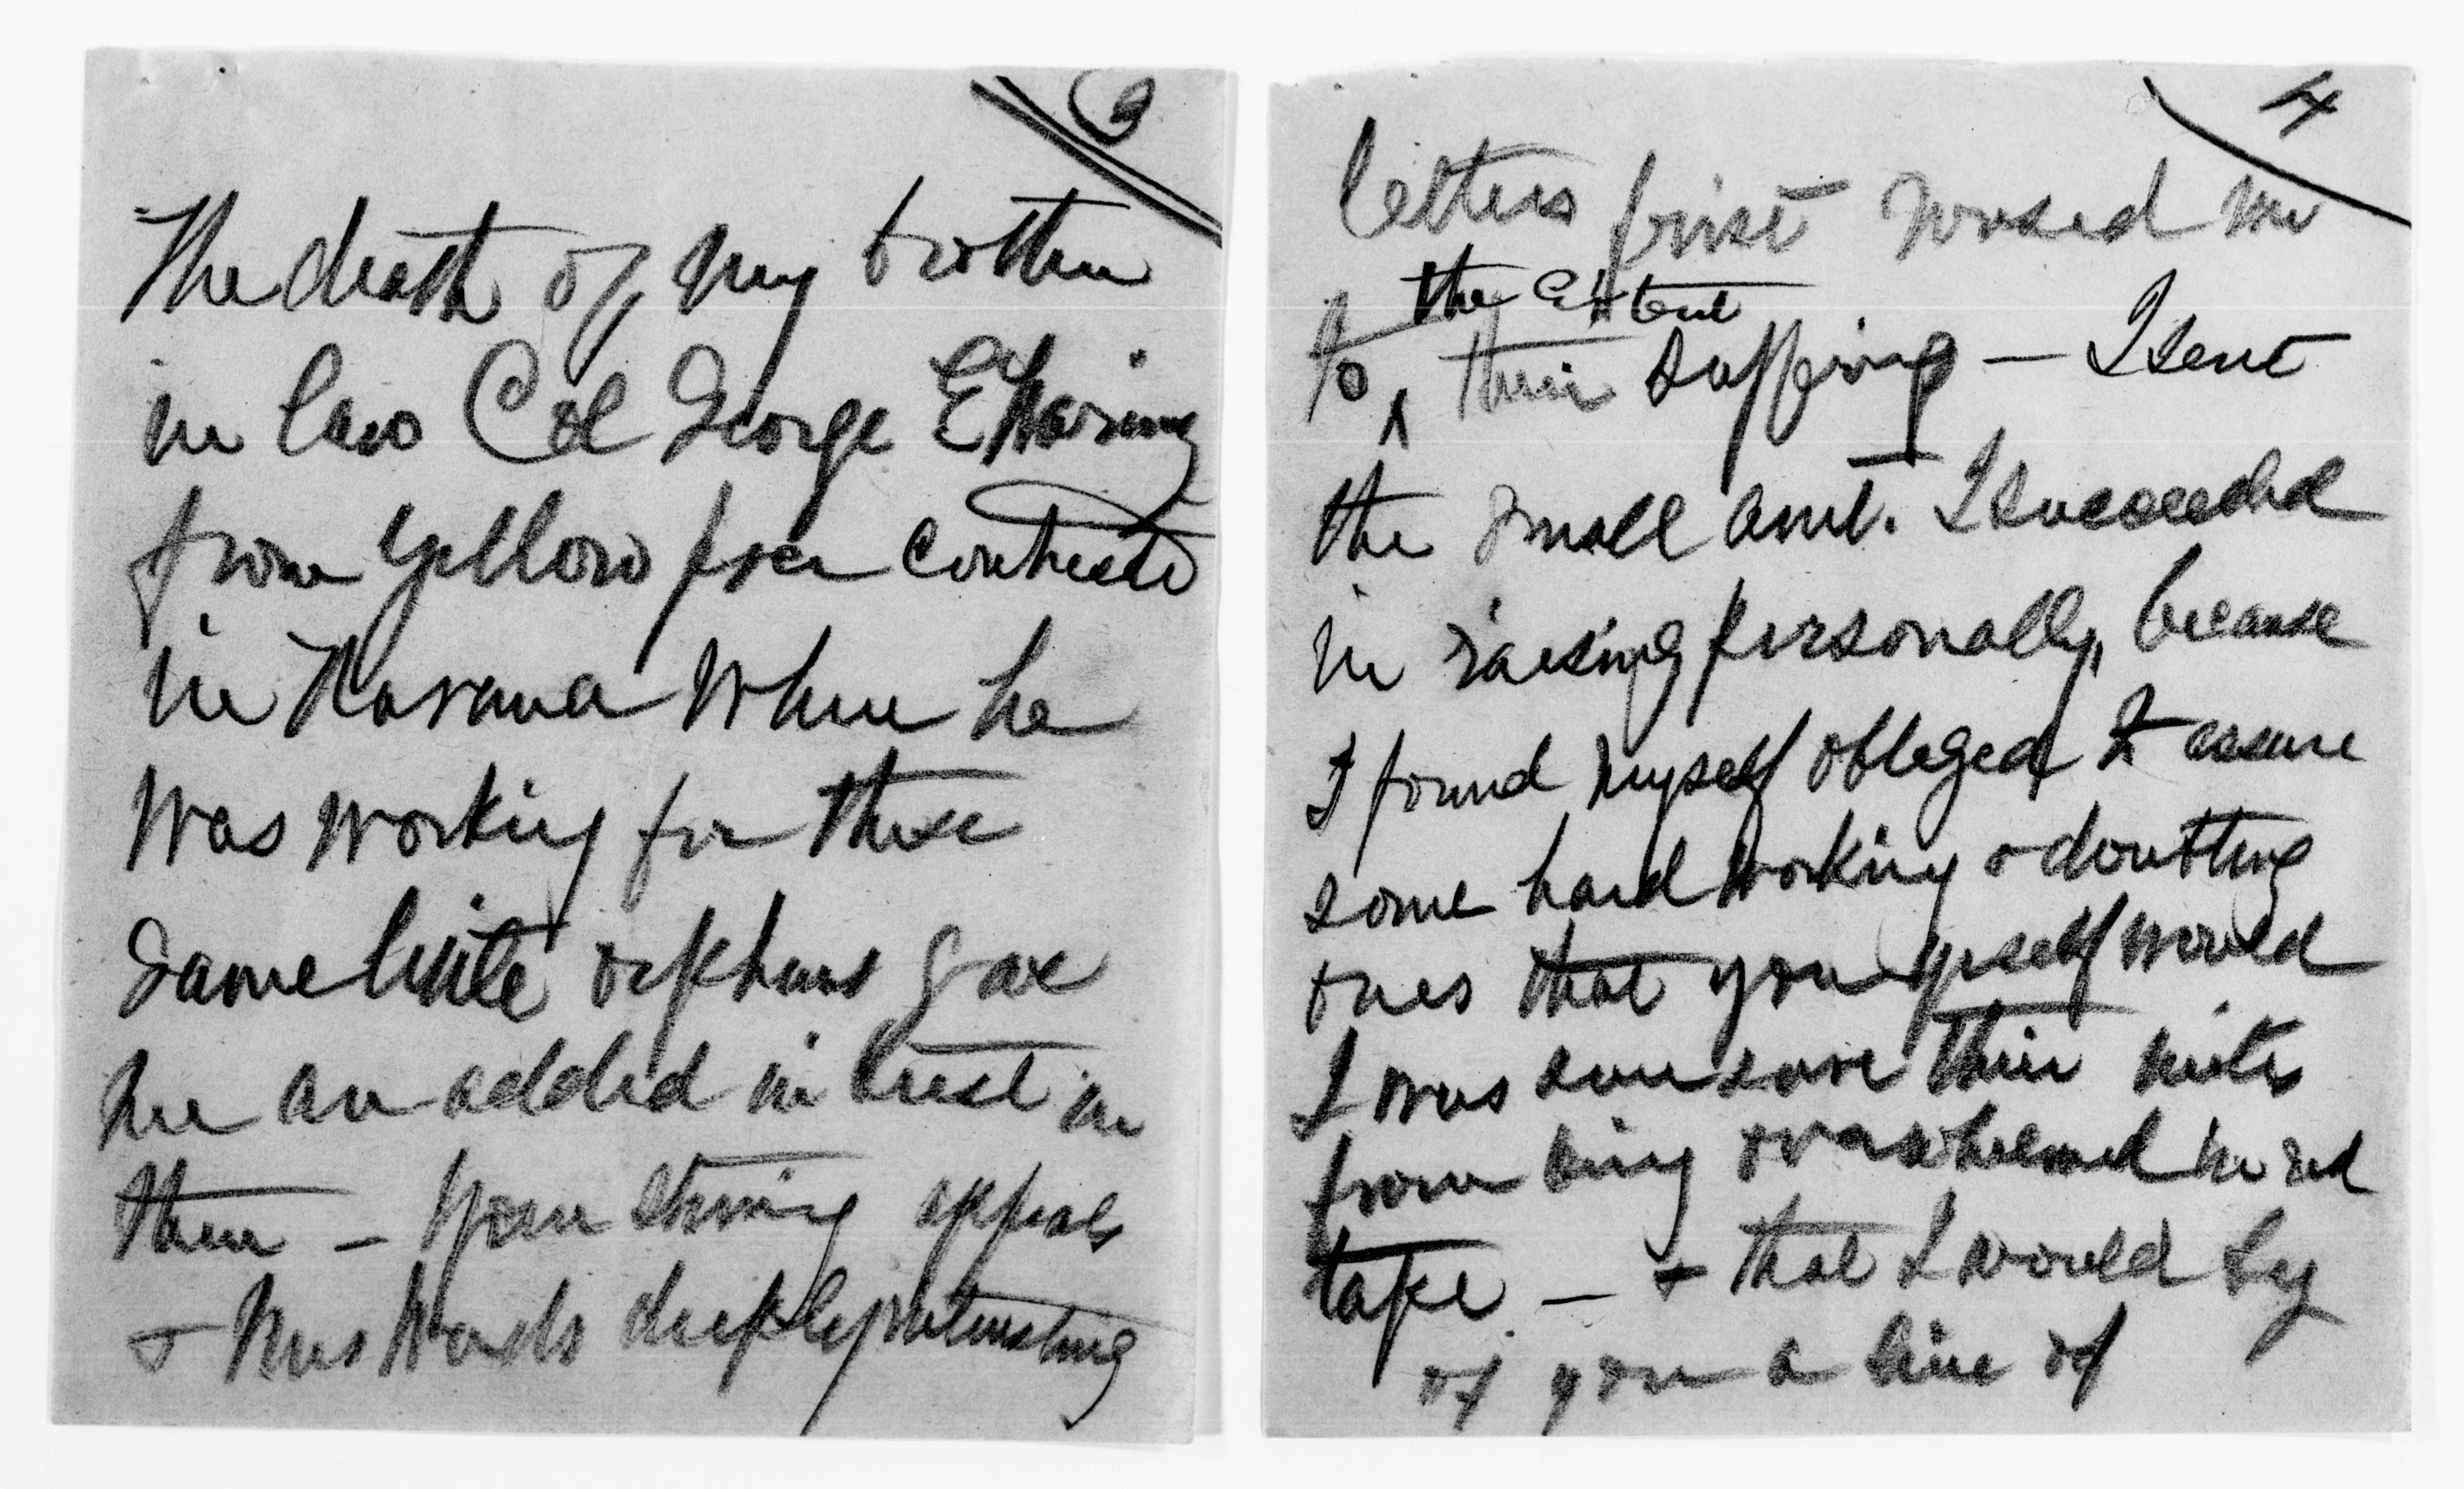 3
The death of my brother
in law Col George E Waring
from yellow fever contracted
in Havana where he
was working for these
same little orphans gave
me an added interest in
them — Your strring appeals
& Mrs Wards deeply interesting
4
letters first roused me
to the extent
their suffring — I sent
the small amt. I succeeded
in raising personally, because
I found myself obliged to assure
some hard working & doubting
ones that you yrself would
I was sure save their mites
from being overwhelmed in red
tape — & that I would beg
of you a line of